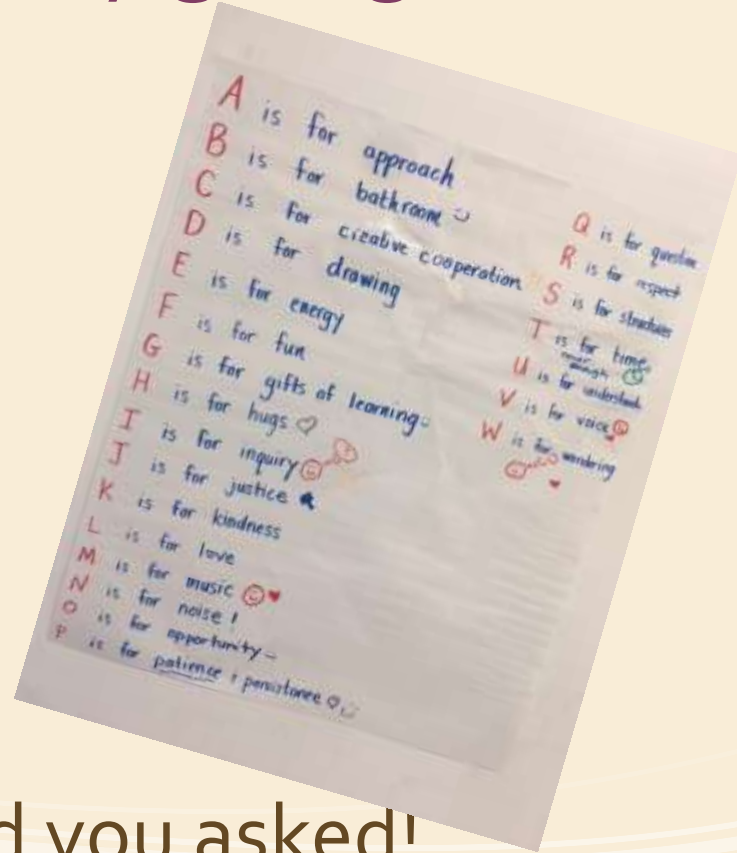 A is for approach
B is for bathroom
C is for creative cooperation
D is for drawing
E is for energy
F is for fun
G is for gifts of learning
H is for hugs
I is for inquiry
J is for justice
K is for kindness
L is for love
M is for music
N is for noise!
O is for opportunity
P is for patience & persistance
Q is for question
R is for respect
S is for structures
T is for time
U is for understand
V is for voice
W is for wondering
d you asked!